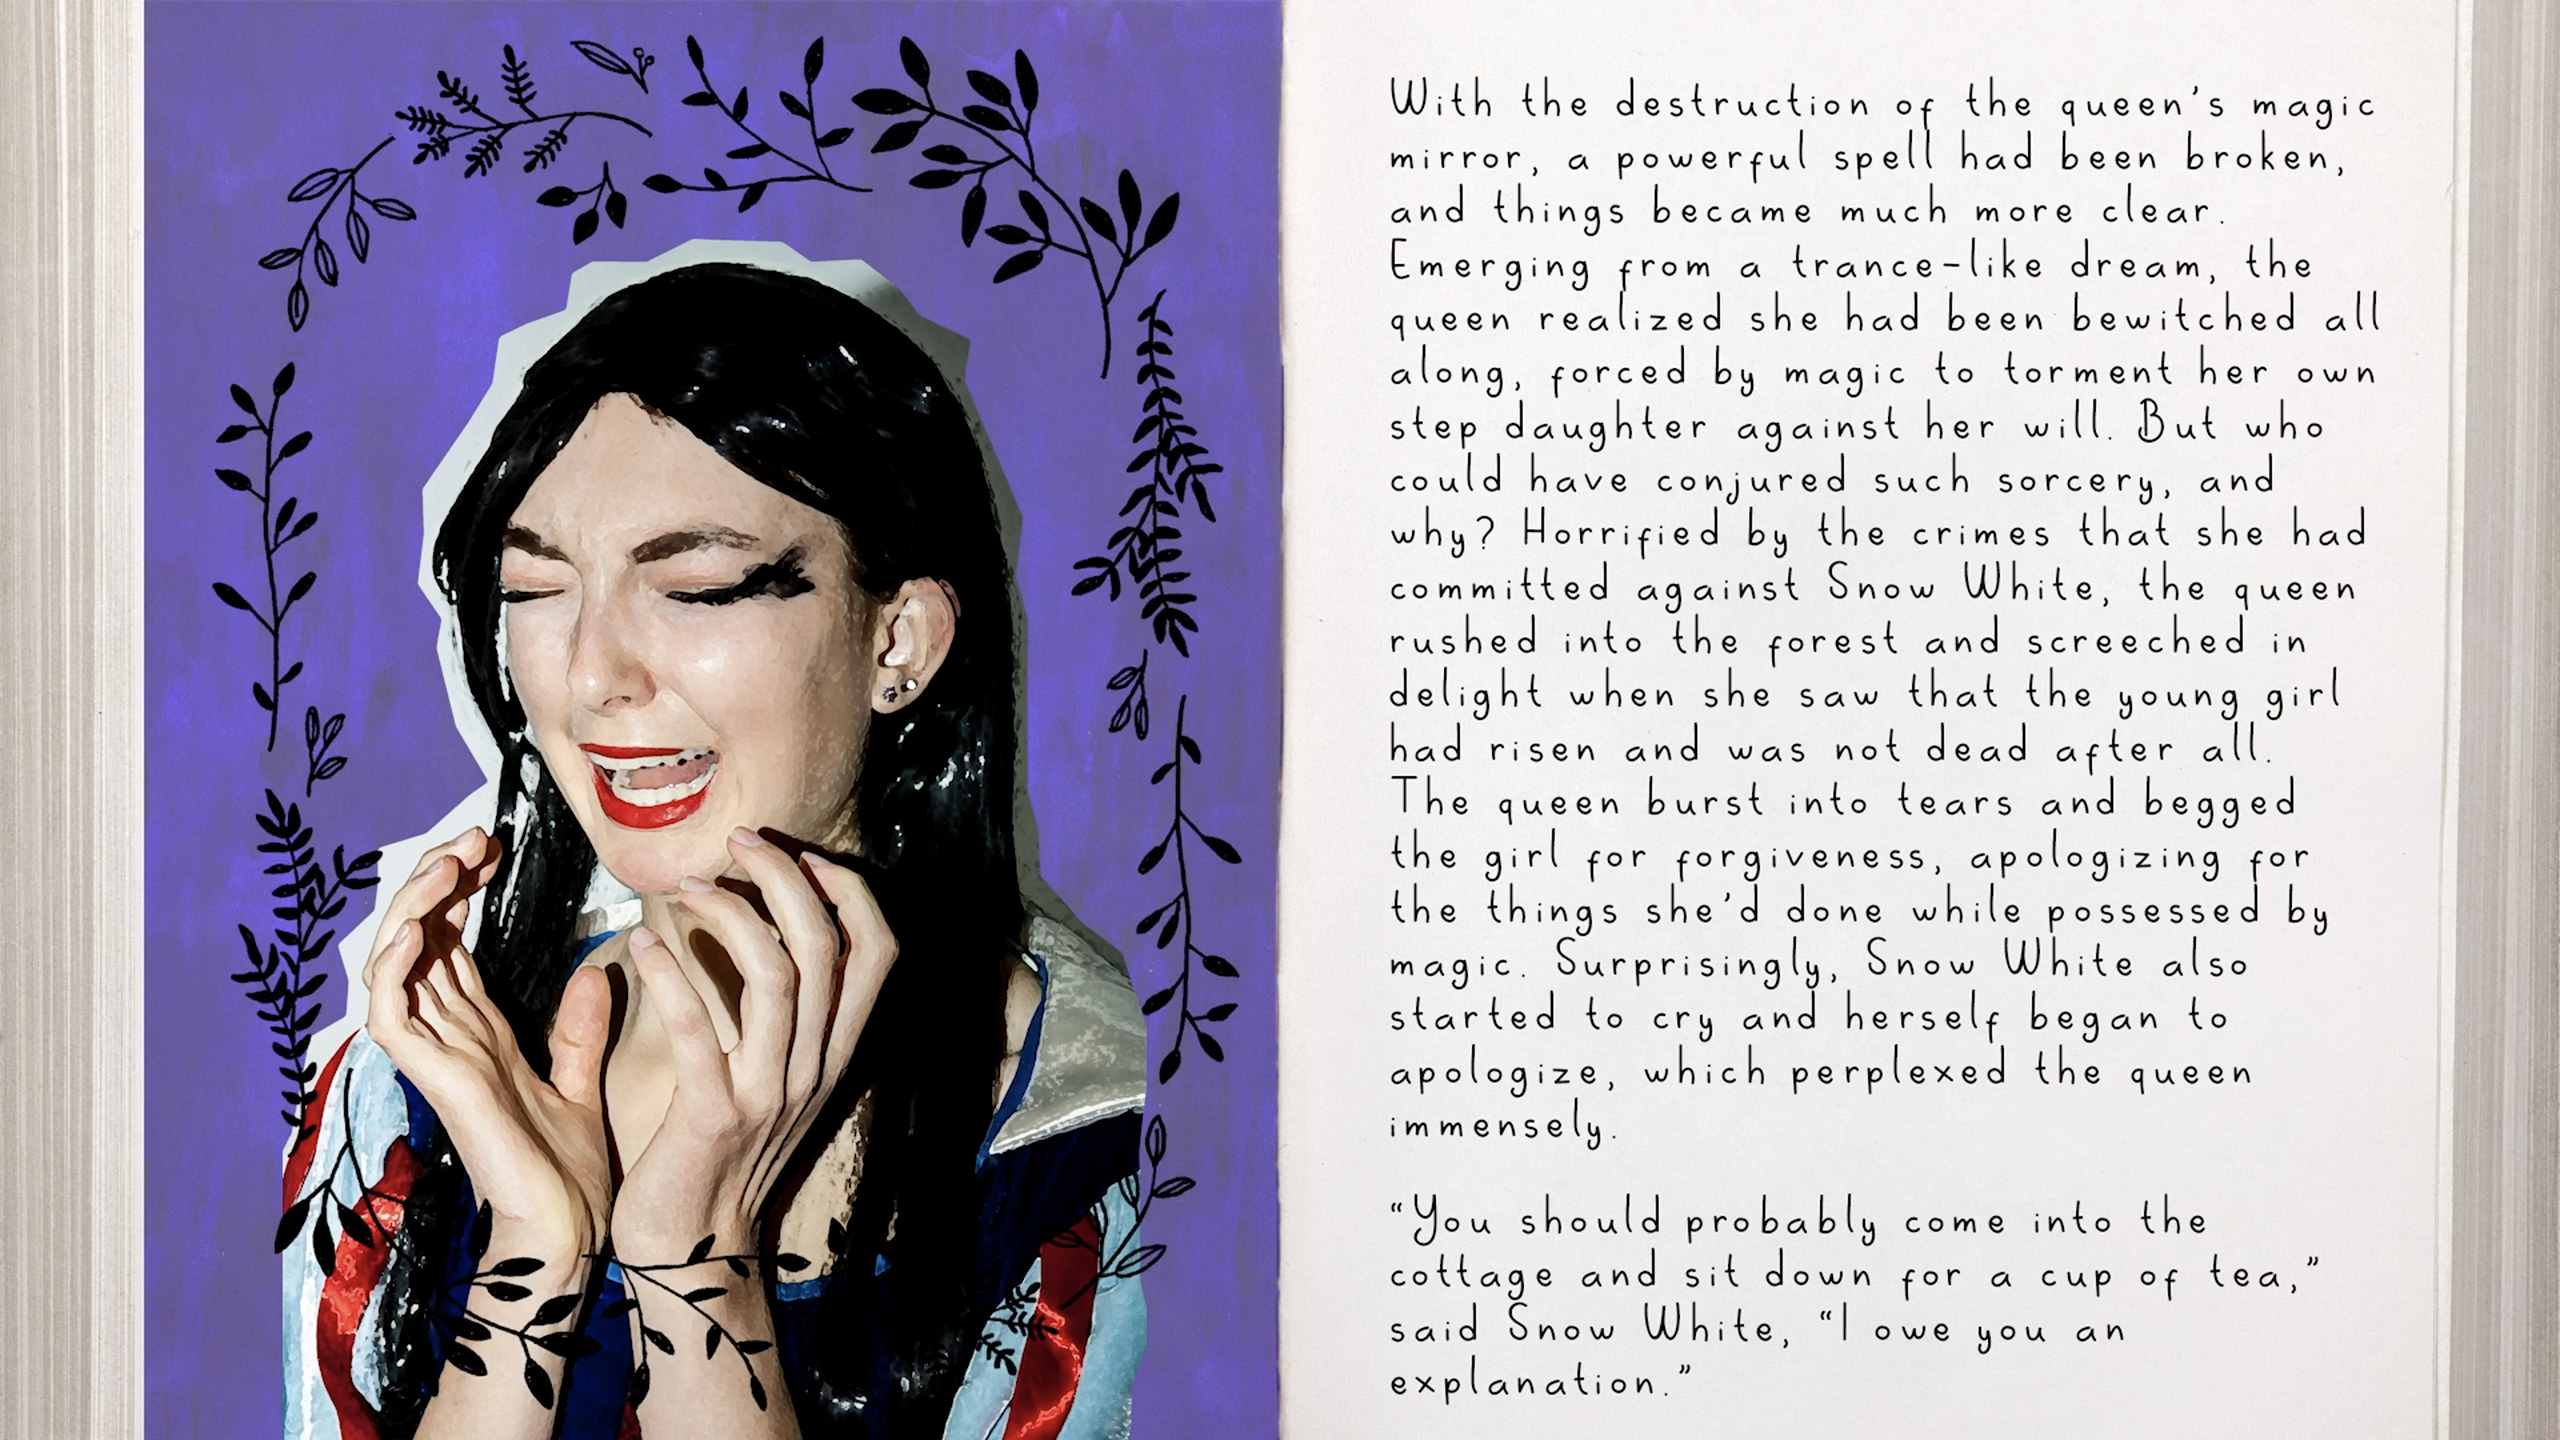 With the destruction of the queen's magic
mirror, a powerful spell had been broken,
and things became much more clear.
Emerging from a trance-like dream, the
queen realized she had been bewitched all
along, forced by magic to torment her own
step daughter against her will. But who
could have conjured such sorcery, and
why? Horrified by the crimes that she had
committed against Snow White, the queen
rushed into the forest and screeched in
delight when she saw that the young girl
had risen and was not dead after all.
The queen burst into tears and begged
the girl for forgiveness, apologizing for
the things she'd done while possessed by
magic. Surprisingly, Snow White also
started to cry and herself began to
apologize, which perplexed the queen
immensely.
“You should probably come into the
cottage and sit down for a cup of tea,”
said Snow White, “I owe you an
explanation.”